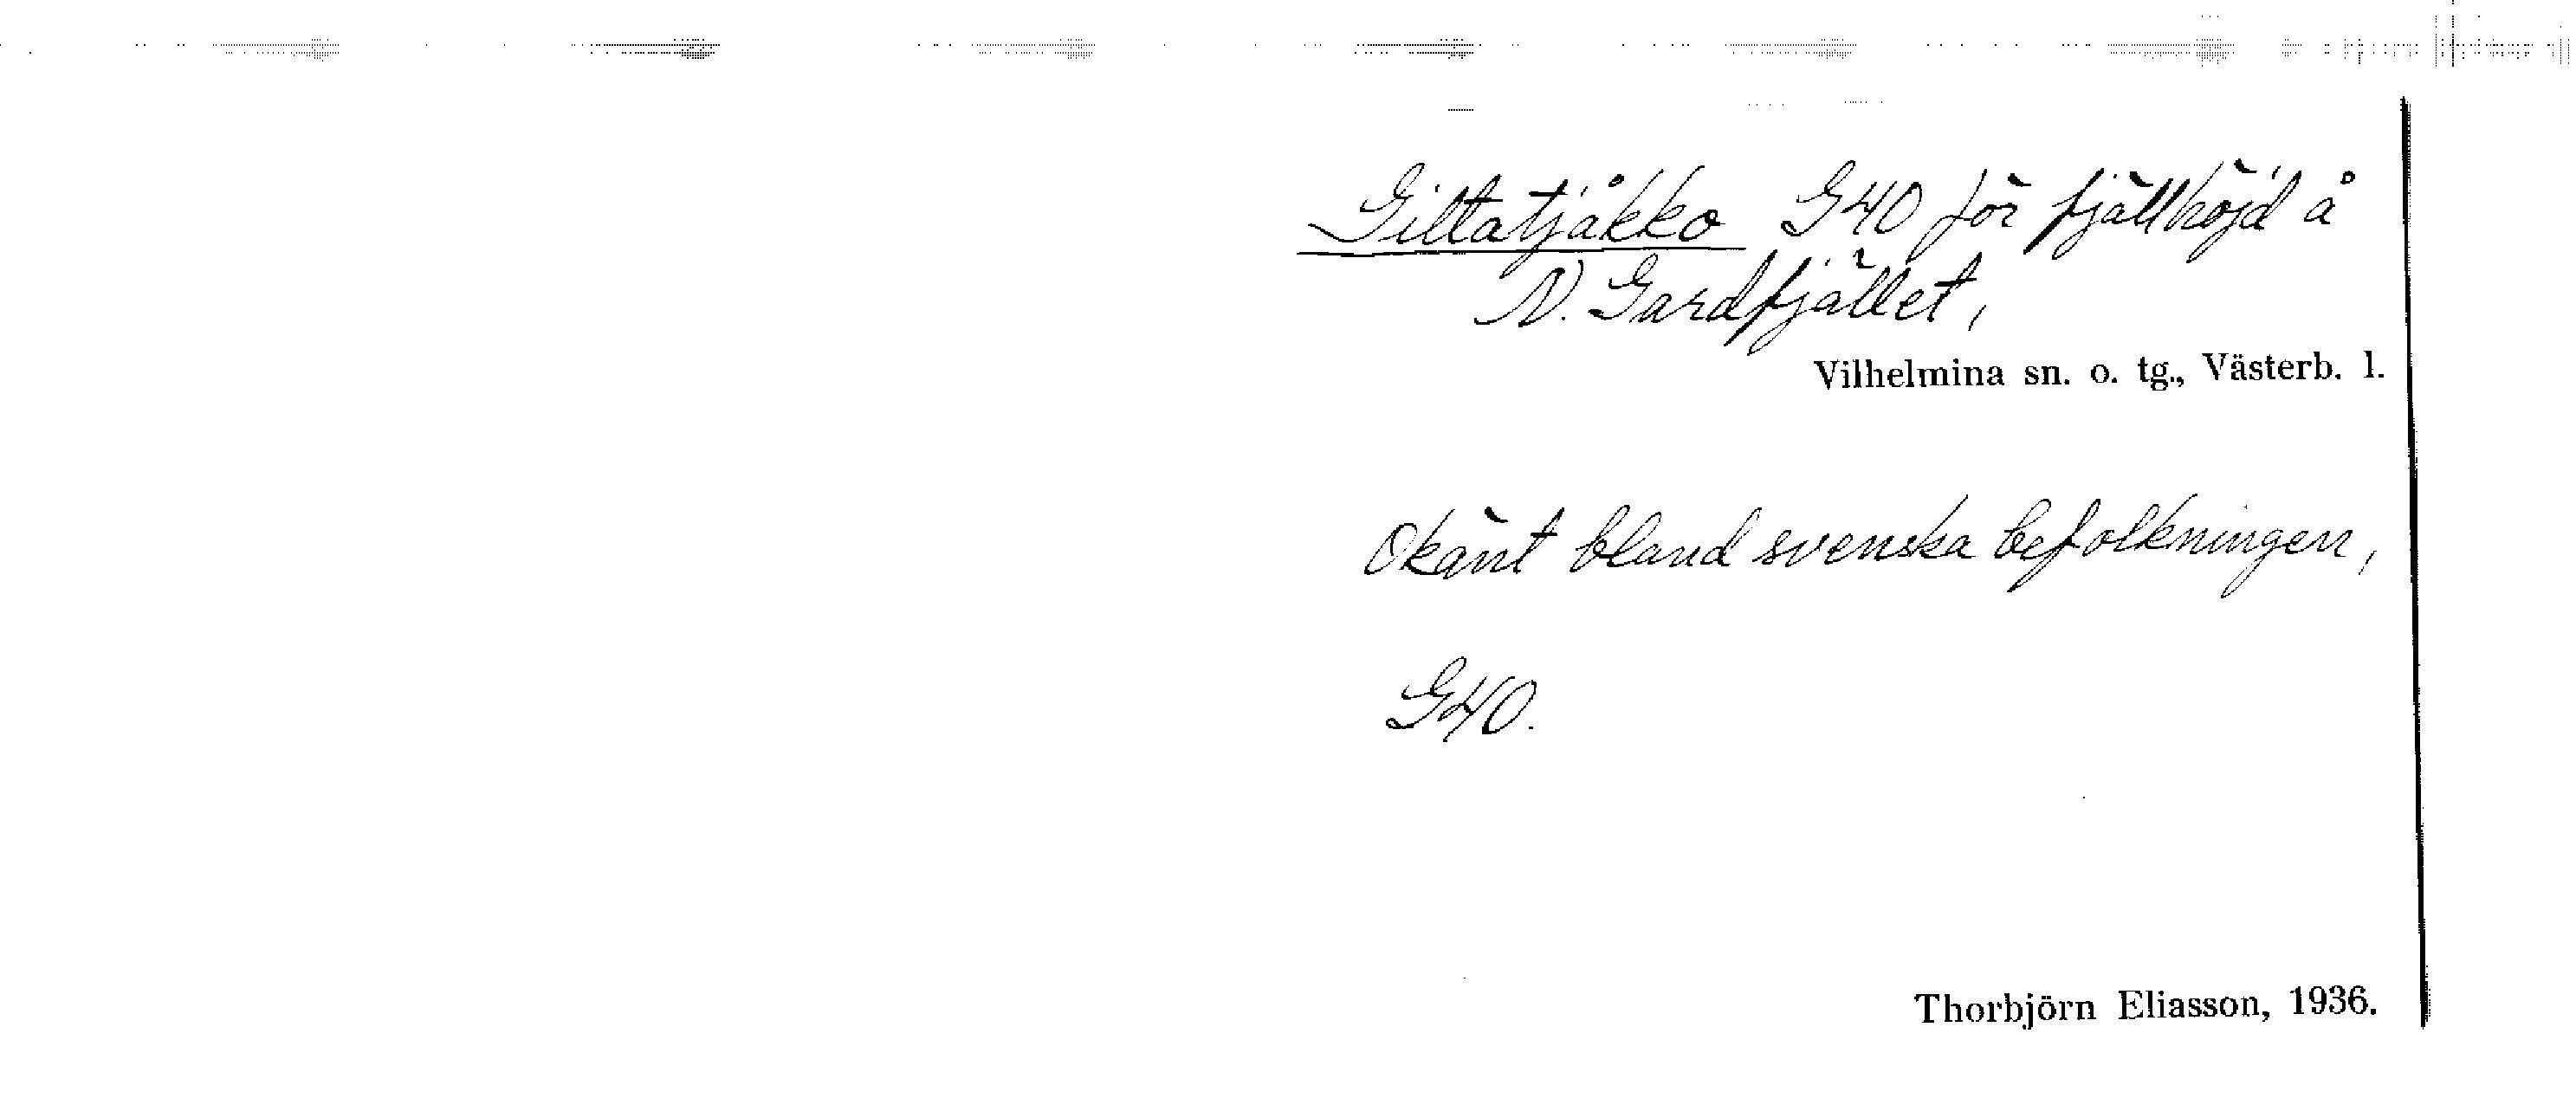 Giltatjåkko G40 för fjällhöjd å
N. Gardfjället,
Vilhelmina sn. o. tg., Västerb. l.
Okänt bland svenska befolkningen,
G40.
Thorbjörn Eliasson, 1936.